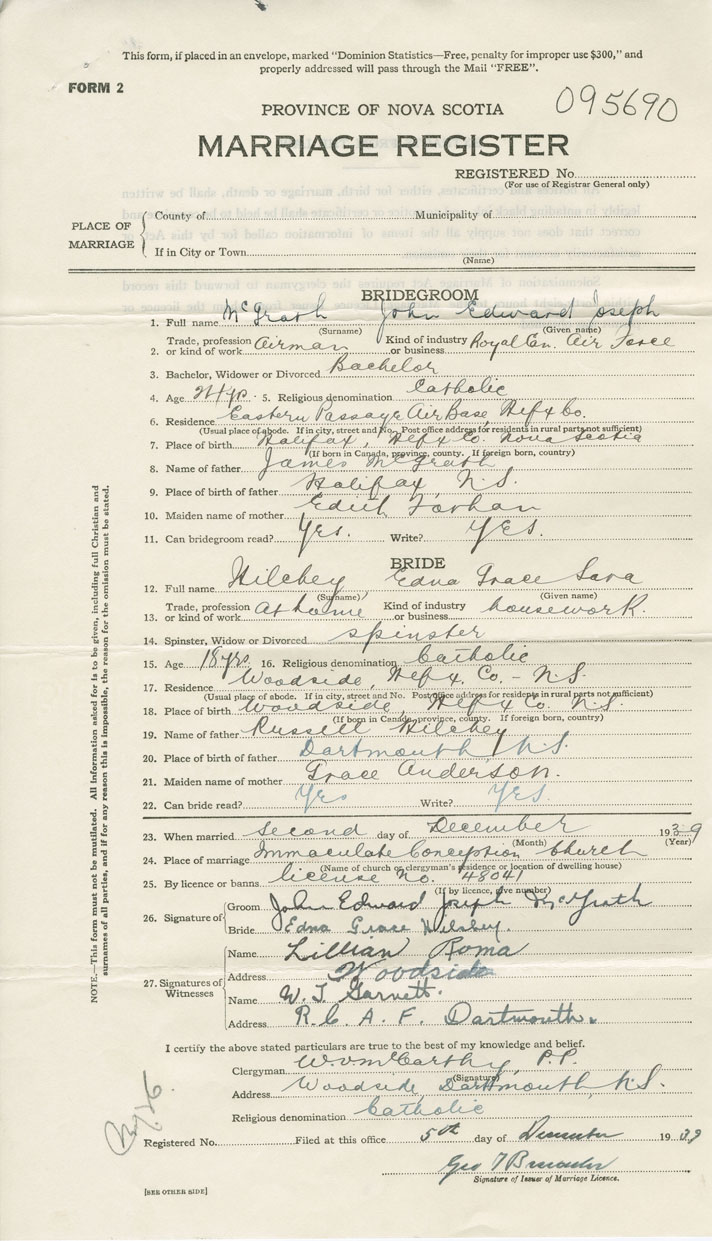 This form, if placed in an envelope, marked "Dominion Statistics—Free, penalty for improper use $300," and
properly addressed will pass through the Mail "FREE".
FORM 2
095690
PROVINCE OF NOVA SCOTIA
MARRIAGE REGISTER
REGISTERED No.
(For use of Registrar General only)
PLACE OF MARRIAGE
County of Municipality of
If in City or Town
(Name)
BRIDEGROOM
1. Full name McGrath John Edward Joseph
(Surname) (Given name)
2. Trade, profession or kind of work Airman Kind of industry or business Royal Can. Air Force
3. Bachelor, Widower or Divorced Bachelor
4. Age 24 yrs. 5. Religious denomination Catholic
6. Residence Eastern Passage Air Base Hfx Co.
(Usual place of abode. If in city, street and No. Post office address for residents in rural parts not sufficient)
7. Place of birth Halifax, Hfx Co. Nova Scotia
(If born in Canada, province, county. If foreign born, country)
8. Name of father James McGrath
9. Place of birth of father Halifax, N.S.
10. Maiden name of mother Edith
11. Can bridegroom read? Yes. Write? Yes.
BRIDE
12. Full name Hilchey Edna Grace Sara
(Surname) (Given name)
13. Trade, profession or kind of work At home Kind of industry or business housework.
14. Spinster, Widow or Divorced spinster
15. Age 18 yrs 16. Religious denomination Catholic
17. Residence Woodside, Hfx. Co. - N.S.
(Usual place of abode. If in city, street and No. Post office address for residents in rural parts not sufficient)
18. Place of birth Woodside, Hfx Co. N.S.
(If born in Canada, province, county. If foreign born, country)
19. Name of father Russell Hilchey
20. Place of birth of father Dartmouth, N.S.
21. Maiden name of mother Grace Anderson.
22. Can bride read? Yes Write? Yes.
23. When married second day of December 1939
(Month) (Year)
24. Place of marriage Immaculate Conception Church
(Name of church or clergyman's residence or location of dwelling house)
25. By licence or banns license No. 48041
(If by licence, give number)
26. Signature of
Groom John Edward Joseph McGrath
Bride Edna Grace Hilchey.
27. Signatures of Witnesses
Name Lillian Roma
Address Woodside
Name W. J. Garnett.
Address R.C.A.F. Dartmouth.
I certify the above stated particulars are true to the best of my knowledge and belief.
Clergyman McCarthy, P.P.
(Signature)
Address Woodside, Dartmouth, N.S.
Religious denomination Catholic
Registered No. Filed at this office 5th day of December 1939
Geo
Signature of Issuer of Marriage Licence.
[SEE OTHER SIDE]
NOTE.—This form must not be mutilated. All information asked for is to be given, including full Christian and
surnames of all parties, and if for any reason this is impossible, the reason for the omission must be stated.